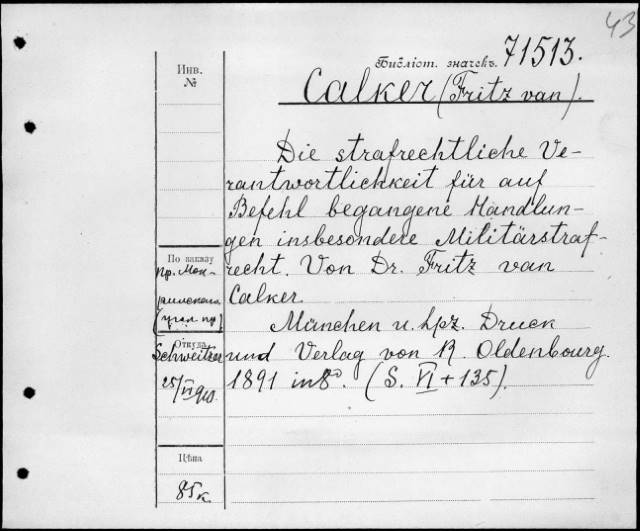 43
Библіот. значекъ. 71513.
Инв.
№
Calker (Fritz van).
Die strafrechtliche Ve-
rantwortlichkeit für auf
Befehl begangene Handlun-
gen insbesondere Militärstraf-
recht. Von Dr. Fritz van
Calker.
München u. Lpz. Druck
und Verlag von R. Oldenbourg.
1891 in 8º. (S. VI + 135).
По заказу
пр.
(угол. пр)
Откуда
Schweitzer
25/VI 910.
Цѣна
85 к